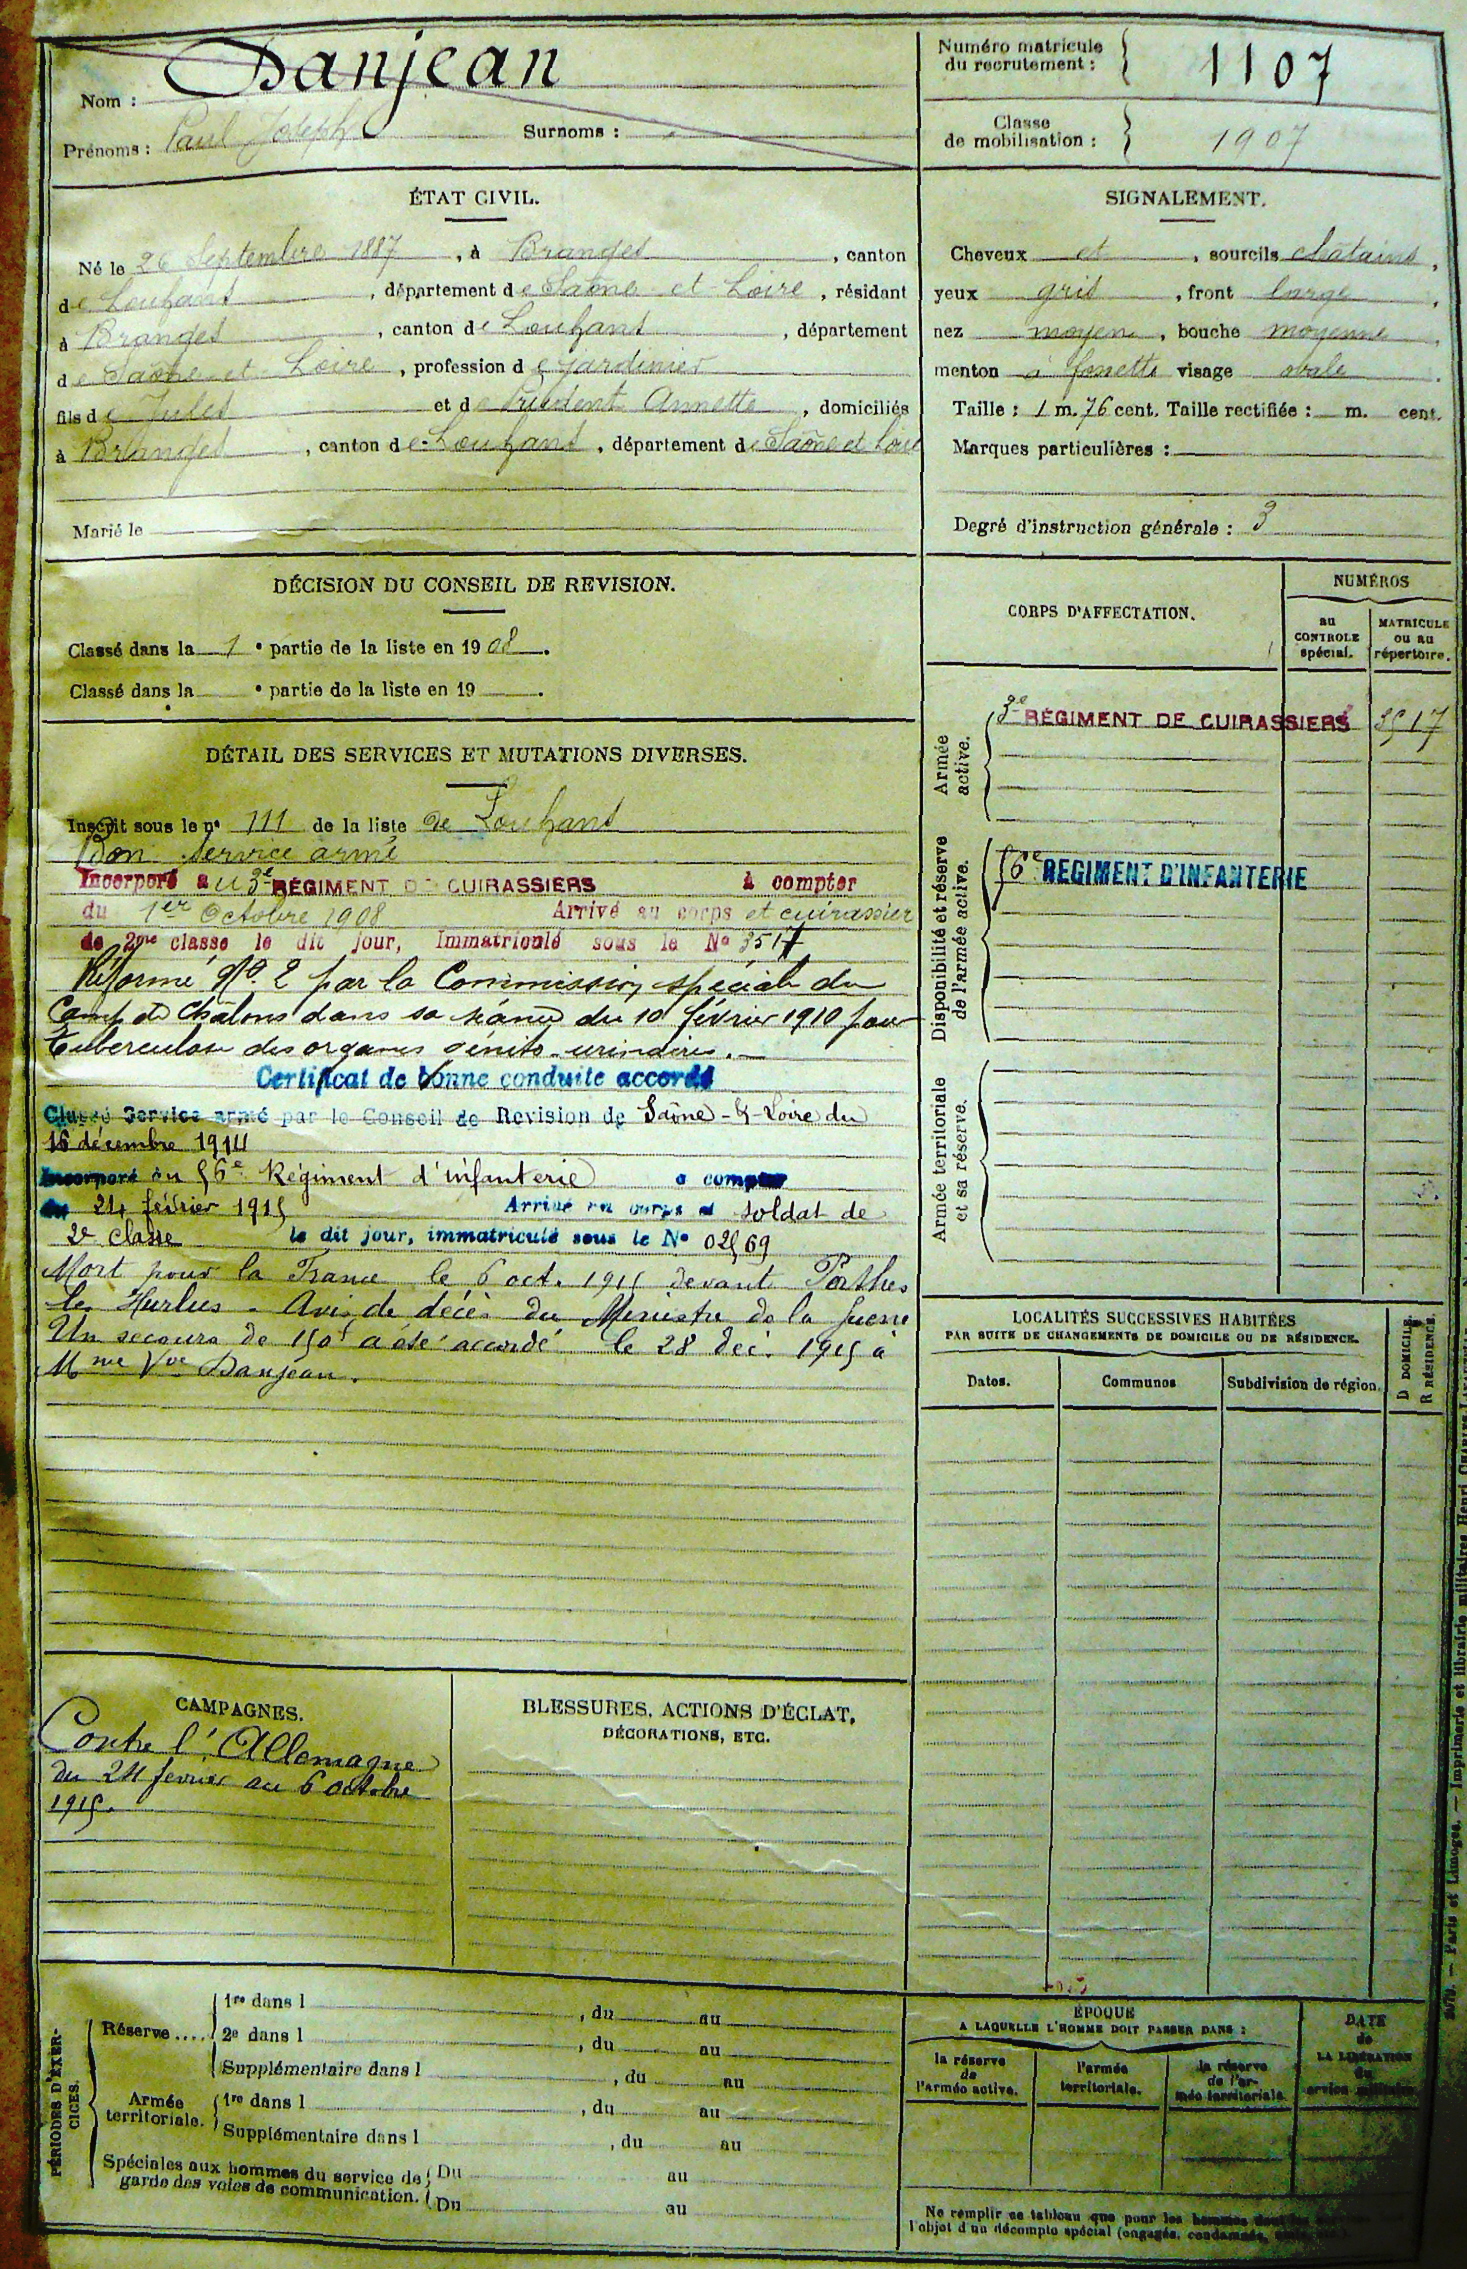 Nom : Danjean
Prénoms : Paul Joseph Surnoms :
Numéro matricule du recrutement : 1107
Classe de mobilisation : 1907
ÉTAT CIVIL.
Né le 26 Septembre 1887, à Branges, canton
de Louhans, département de Saône et Loire, résidant
à Branges, canton de Louhans, département
de Saône et Loire, profession de jardinier
fils de Jules et de Prudent Annette, domiciliés
à Branges, canton de Louhans, département de Saône et Loire
Marié le
SIGNALEMENT.
Cheveux et, sourcils châtains,
yeux gris, front large,
nez moyen, bouche moyenne,
menton à fossette visage ovale.
Taille : 1 m. 76 cent. Taille rectifiée : m. cent.
Marques particulières :
Degré d'instruction générale : 3
DÉCISION DU CONSEIL DE REVISION.
Classé dans la 1e partie de la liste en 1908.
Classé dans la e partie de la liste en 19 .
DÉTAIL DES SERVICES ET MUTATIONS DIVERSES.
Inscrit sous le n° 111 de la liste de Louhans
Bon service armé
Incorporé au 3e RÉGIMENT DE CUIRASSIERS à compter
du 1er Octobre 1908 Arrivé au corps et cuirassier
de 2me classe le dit jour, Immatriculé sous le No 3517
Réformé No 2 par la Commission spéciale du
Camp de Châlons dans sa séance du 10 février 1910 pour
Tuberculose des organes génito-urinaires.
Certificat de bonne conduite accordé
Classé Service armé par le Conseil de Revision de Saône-&-Loire du
16 décembre 1914
Incorporé au 56e Régiment d'infanterie à compter
du 24 février 1915 Arrivé au corps et soldat de
2e classe le dit jour, immatriculé sous le No 02569
Mort pour la France le 6 oct. 1915 devant Perthes
les Hurlus - Avis de décès du Ministre de la guerre
Un secours de 150f a été accordé le 28 déc. 1915 à
Mme Vve Danjean.
CORPS D'AFFECTATION.
NUMÉROS
au CONTROLE spécial.
MATRICULE ou au répertoire.
Armée active.
3e RÉGIMENT DE CUIRASSIERS 3517
Disponibilité et réserve de l'armée active.
56e REGIMENT D'INFANTERIE
Armée territoriale et sa réserve.
LOCALITÉS SUCCESSIVES HABITÉES
PAR SUITE DE CHANGEMENTS DE DOMICILE OU DE RÉSIDENCE.
Dates.
Communes
Subdivision de région.
D DOMICILE.
R RÉSIDENCE.
CAMPAGNES.
Contre l'Allemagne
du 24 fevrier au 6 octobre
1915.
BLESSURES, ACTIONS D'ÉCLAT,
DÉCORATIONS, ETC.
PÉRIODES D'EXERCICES.
Réserve....
1re dans l , du au
2e dans l , du au
Supplémentaire dans l , du au
Armée territoriale.
1re dans l , du au
Supplémentaire dans l , du au
Spéciales aux hommes du service de
garde des voies de communication.
Du au
Du au
ÉPOQUE
A LAQUELLE L'HOMME DOIT PASSER DANS :
la réserve de l'armée active.
l'armée territoriale.
la réserve de l'armée territoriale
DATE de LA LIBÉRATION du service militaire.
Ne remplir ce tableau que pour les hommes
l'objet d'un décompte spécial (engagés, condamnés,
Paris et Limoges. — Imprimerie et librairie militaires Henri CHARLES-LAVAUZELLE